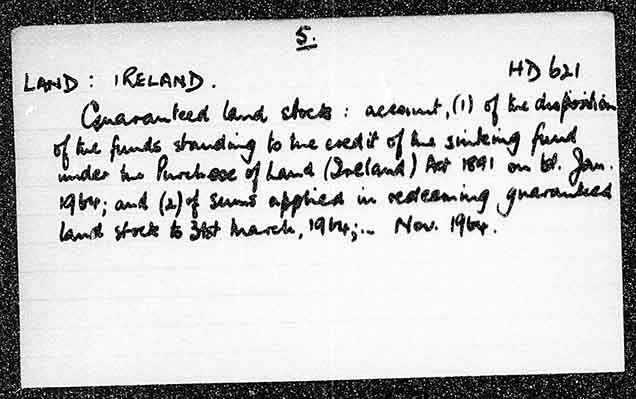 5.
LAND : IRELAND. HD 621
Guaranteed land stocks : account, (1) of the disposition
of the funds standing to the credit of the sinking fund
under the Purchase of Land (Ireland) Act 1891 on 1st. Jan.
1964; and (2) of sums applied in redeeming guaranteed
land stock to 31st March, 1964;... Nov. 1964.